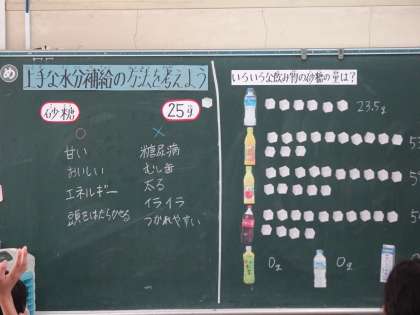 め
上手な水分補給の方法を考えよう
砂糖
25g
○
×
甘い
糖尿病
おいしい
むし歯
エネルギー
太る
頭をはたらかせる
イライラ
つかれやすい
いろいろな飲み物の砂糖の量は?
23.5g
0g
0g